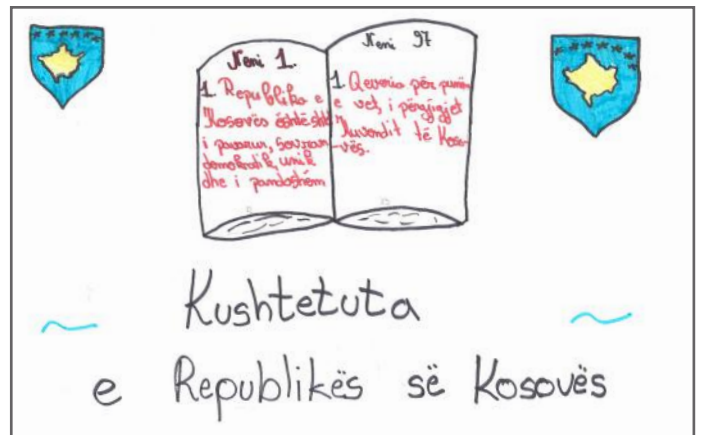 Neni 1.
1. Republika e
Kosovës është shtet
i pavarur, sovran
demokratik, unik
dhe i pandashëm
Neni 97
1. Qeveria për punën
e vet, i përgjigjet
Kuvendit të Koso-
-vës.
Kushtetuta
e Republikës së Kosovës